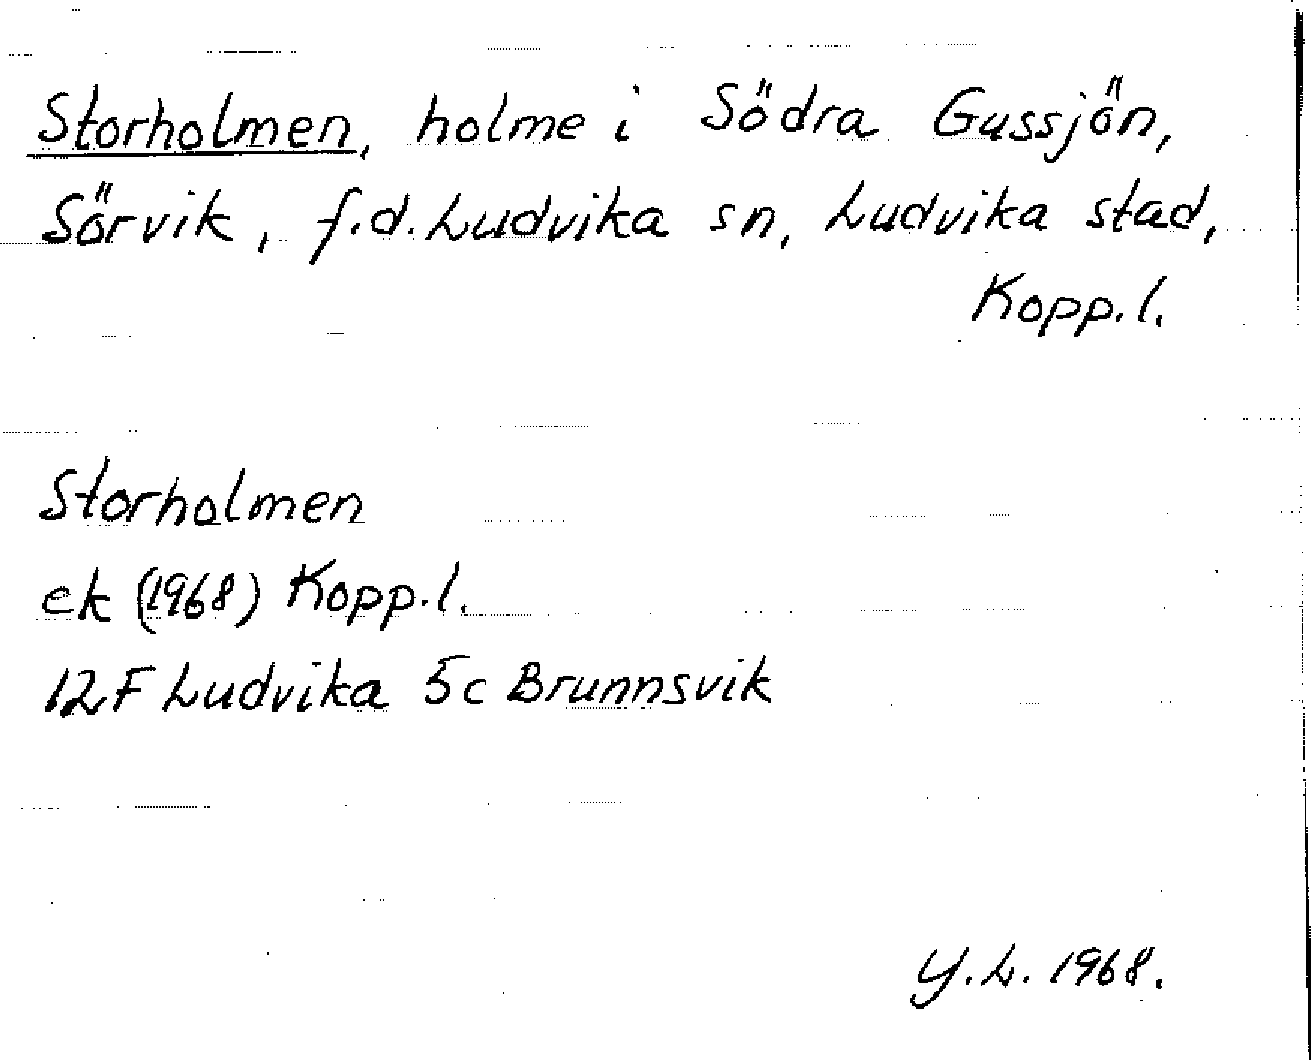 Storholmen, holme i Södra Gussjön,
Sörvik, f.d. Ludvika sn, Ludvika stad,
Kopp.l.
Storholmen
ek (1968) Kopp.l.
12F Ludvika 5c Brunnsvik
Y.L. 1968.